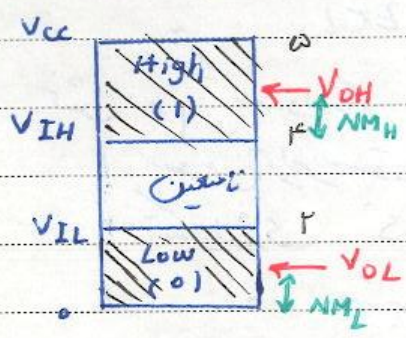 Vcc ۵
High
(1) ← VOH
VIH ۴ NMH
نامعین
VIL ۲
Low
(0) ← VOL
0 NML